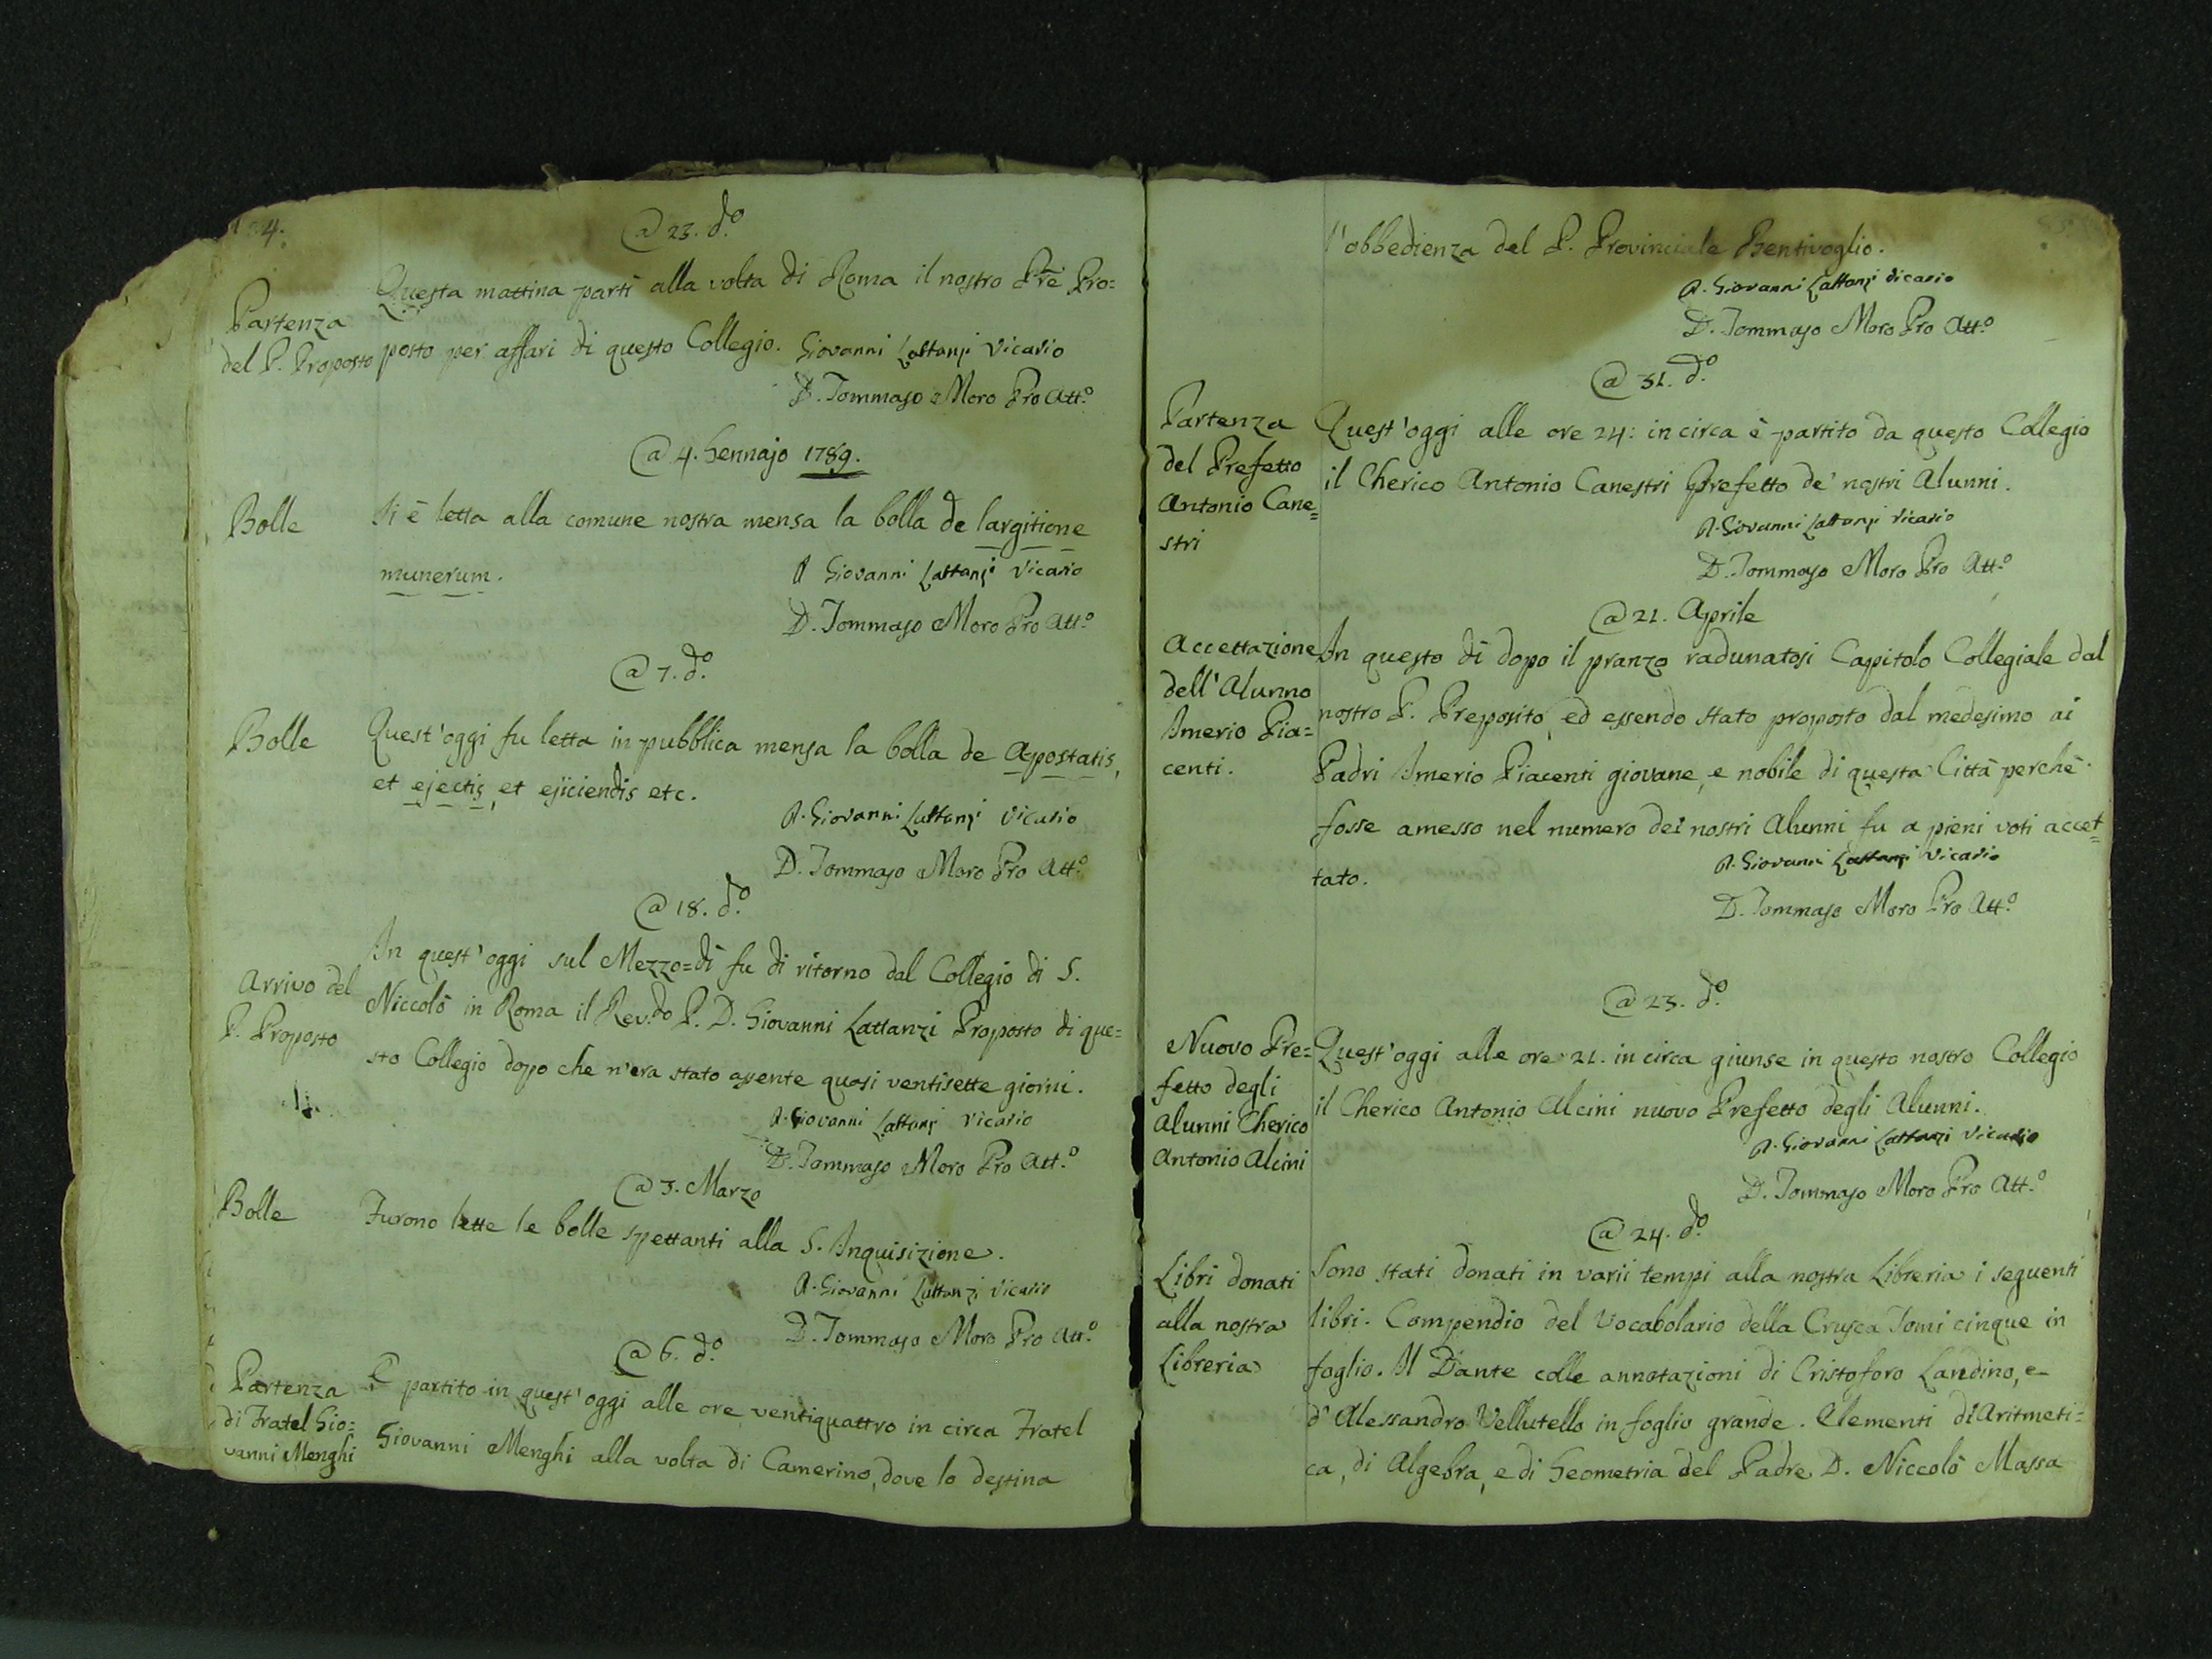 @ 23. d.º
Partenza
del P. Proposto
Questa mattina partì alla volta di Roma il nostro Pre Pro=
posto per affari di questo Collegio. Giovanni Lattanzi Vicario
D. Tommaso Moro Pro Att.º
@ 4. Gennajo 1789.
Bolle
Si è letta alla comune nostra mensa la bolla de largitione
munerum.
Giovanni Lattanzi Vicario
D. Tommaso Moro Pro Att.º
@ 7. d.º
Bolle
Quest'oggi fu letta in pubblica mensa la bolla de Apostatis,
et ejectis, et ejiciendis etc.
D. Giovanni Lattanzi Vicario
D. Tommaso Moro Pro Att.º
@ 18. d.º
Arrivo del
P. Proposto
In quest'oggi sul Mezzo=dì fu di ritorno dal Collegio di S.
Niccolò in Roma il Rev.do P. D. Giovanni Lattanzi Proposto di que=
sto Collegio dopo che n'era stato assente quasi ventisette giorni.
D. Giovanni Lattanzi Vicario
D. Tommaso Moro Pro Att.º
@ 3. Marzo
Bolle
Furono lette le bolle spettanti alla S. Inquisizione.
D. Giovanni Lattanzi Vicario
D. Tommaso Moro Pro Att.º
@ 6. d.º
Partenza
di Fratel Gio=
vanni Menghi
È partito in quest'oggi alle ore ventiquattro in circa Fratel
Giovanni Menghi alla volta di Camerino, dove lo destina
l'obbedienza del P. Provinciale Bentivoglio.
D. Giovanni Lattanzi Vicario
D. Tommaso Moro Pro Att.º
@ 31. d.º
Partenza
del Prefetto
Antonio Cane=
stri
Quest'oggi alle ore 24: in circa è partito da questo Collegio
il Cherico Antonio Canestri Prefetto de' nostri Alunni.
D. Giovanni Lattanzi Vicario
D. Tommaso Moro Pro Att.º
@ 21. Aprile
Accettazione
dell'Alunno
Imerio Pia=
centi.
In questo dì dopo il pranzo radunatosi Capitolo Collegiale dal
nostro P. Preposito, ed essendo stato proposto dal medesimo ai
Padri Imerio Piacenti giovane, e nobile di questa Città perchè
fosse amesso nel numero dei nostri Alunni fu a pieni voti accet=
tato.
D. Giovanni Lattanzi Vicario
D. Tommaso Moro Pro Att.º
@ 23. d.º
Nuovo Pre=
fetto degli
Alunni Cherico
Antonio Alcini
Quest'oggi alle ore 21. in circa giunse in questo nostro Collegio
il Cherico Antonio Alcini nuovo Prefetto degli Alunni.
D. Giovanni Lattanzi Vicario
D. Tommaso Moro Pro Att.º
@ 24. d.º
Libri donati
alla nostra
Libreria
Sono stati donati in varii tempi alla nostra Libreria i seguenti
libri. Compendio del Vocabolario della Crusca Tomi cinque in
foglio. Il Dante colle annotazioni di Cristoforo Landino, e
d'Alessandro Vellutello in foglio grande. Elementi di Aritmeti=
ca, di Algebra, e di Geometria del Padre D. Niccolò Massa